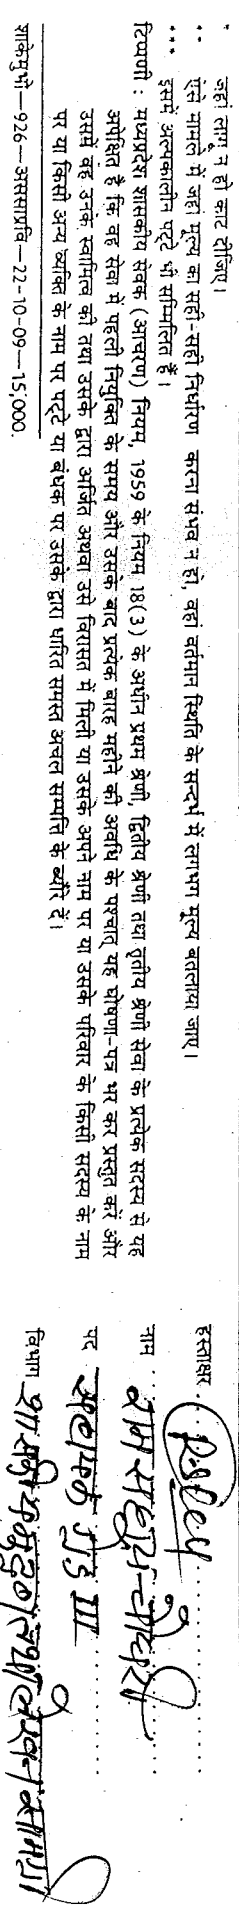 * जहां लागू न हो काट दीजिए।
** ऐसे मामले में जहां मूल्य का सही-सही निर्धारण करना संभव न हो, वहां वर्तमान स्थिति के सन्दर्भ में लगभग मूल्य बतलाया जाए।
*** इसमें अल्पकालीन पट्टे भी सम्मिलित हैं।
टिप्पणी : मध्यप्रदेश शासकीय सेवक (आचरण) नियम, 1959 के नियम 18(3) के अधीन प्रथम श्रेणी, द्वितीय श्रेणी तथा तृतीय श्रेणी सेवा के प्रत्येक सदस्य से यह
अपेक्षित है कि वह सेवा में पहली नियुक्ति के समय और उसके बाद प्रत्येक बारह महीने की अवधि के पश्चात् यह घोषणा-पत्र भर कर प्रस्तुत करें और
उसमें वह उनके स्वामित्व की तथा उसके द्वारा अर्जित अथवा उसे विरासत में मिली या उसके अपने नाम पर या उसके परिवार के किसी सदस्य के नाम
पर या किसी अन्य व्यक्ति के नाम पर पट्टे या बंधक पर उसके द्वारा धारित समस्त अचल सम्पत्ति के ब्यौरे दें।
शाकेमुभो—926—असससप्रवि—22-10-09—15,000.
हस्ताक्षर
नाम रामसाहुय चौधरी
पद सहायक ग्रेड III
विभाग